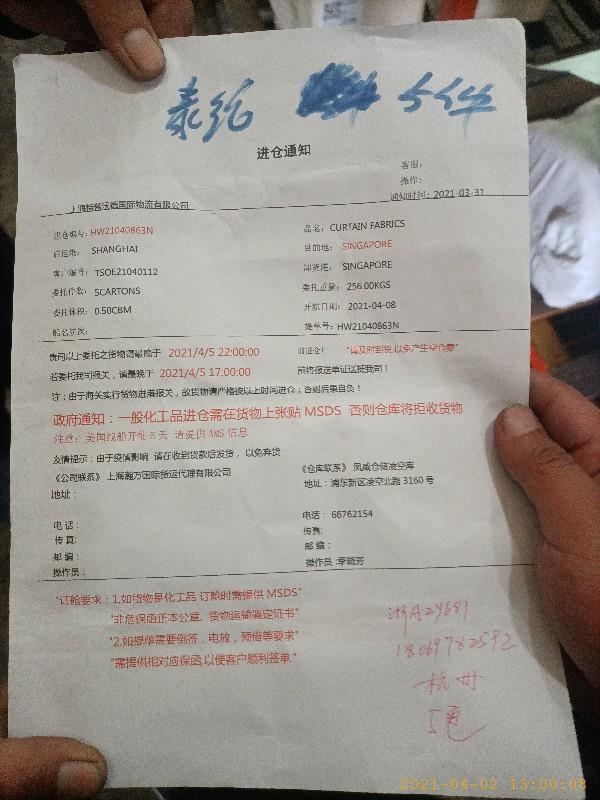 泰纶 5件
进仓通知
客服：
操作：
通知时间：2021-03-31
国际物流有限公司
进仓编号：HW21040863N
品名：CURTAIN FABRICS
启运港： SHANGHAI
目的地： SINGAPORE
客户编号： TSOE21040112
卸货港： SINGAPORE
委托件数： 5CARTONS
委托重量： 256.00KGS
委托体积： 0.50CBM
开航日期： 2021-04-08
船名航次：
提单号：HW21040863N
贵司以上委托之货物请最晚于 2021/4/5 22:00:00 前进仓！ "请及时到货,以免产生空仓费"
若委托我司报关，请最晚于 2021/4/5 17:00:00 前将报送单证送抵我司！
注：由于海关实行货物进港报关，故货物请严格按以上时间进仓；否则后果自负！
政府通知：一般化工品进仓需在货物上张贴 MSDS 否则仓库将拒收货物
注意：美国线船开船 5 天 请提供 AMS 信息
友情提示：由于疫情影响 请在收到货款后发货，以免弃货
《公司联系》上海瀚万国际货运代理有限公司
《仓库联系》 凤威仓储凌空库
地址：
地址：浦东新区凌空北路 3160 号
电话：
电话： 66762154
传真:
传真:
邮编：
邮编：
操作员：
操作员：李晓芳
"订舱要求：1,如货物是化工品 订舱时需提供 MSDS"
"非危保函正本公章, 货物运输鉴定证书"
"2.如提单需要倒签，电放，预借等要求"
"需提供相对应保函,以便客户顺利签单."
浙A29681
18069782592
杭州
5包
2021-04-02 13:00:08